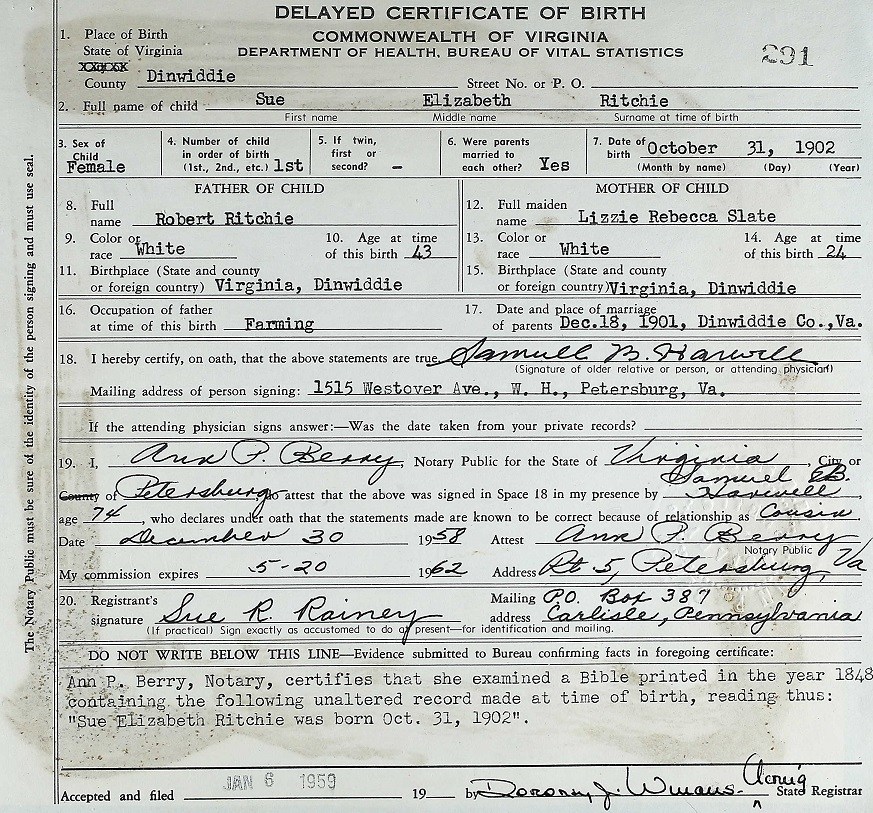 DELAYED CERTIFICATE OF BIRTH
COMMONWEALTH OF VIRGINIA
DEPARTMENT OF HEALTH, BUREAU OF VITAL STATISTICS
291
1. Place of Birth
State of Virginia
County Dinwiddie Street No. or P. O.
2. Full name of child Sue Elizabeth Ritchie
First name Middle name Surname at time of birth
3. Sex of Child Female
4. Number of child in order of birth (1st, 2nd, etc.) 1st
5. If twin, first or second? -
6. Were parents married to each other? Yes
7. Date of birth October 31, 1902
(Month by name) (Day) (Year)
FATHER OF CHILD
8. Full name Robert Ritchie
9. Color or race White
10. Age at time of this birth 43
11. Birthplace (State and county
or foreign country) Virginia, Dinwiddie
MOTHER OF CHILD
12. Full maiden name Lizzie Rebecca Slate
13. Color or race White
14. Age at time of this birth 24
15. Birthplace (State and county
or foreign country) Virginia, Dinwiddie
16. Occupation of father
at time of this birth Farming
17. Date and place of marriage
of parents Dec.18, 1901, Dinwiddie Co.,Va.
18. I hereby certify, on oath, that the above statements are true Samuel B. Harwell
(Signature of older relative or person, or attending physician)
Mailing address of person signing: 1515 Westover Ave., W. H., Petersburg, Va.
If the attending physician signs answer:—Was the date taken from your private records?
19. I, Ann P. Berry, Notary Public for the State of Virginia, City or
County of Petersburg, do attest that the above was signed in Space 18 in my presence by Samuel B. Harwell,
age 74, who declares under oath that the statements made are known to be correct because of relationship as Cousin
Date December 30 1958 Attest Ann P. Berry
Notary Public
My commission expires 5-20 1962 Address Rt 5, Petersburg, Va
20. Registrant's signature Sue R. Rainey
Mailing address P.O. Box 387
Carlisle, Pennsylvania
(If practical) Sign exactly as accustomed to do at present—for identification and mailing.
DO NOT WRITE BELOW THIS LINE—Evidence submitted to Bureau confirming facts in foregoing certificate:
Ann P. Berry, Notary, certifies that she examined a Bible printed in the year 1848
containing the following unaltered record made at time of birth, reading thus:
"Sue Elizabeth Ritchie was born Oct. 31, 1902".
JAN 6 1959
Accepted and filed 19 by Dorothy J. Acting State Registrar
The Notary Public must be sure of the identity of the person signing and must use seal.